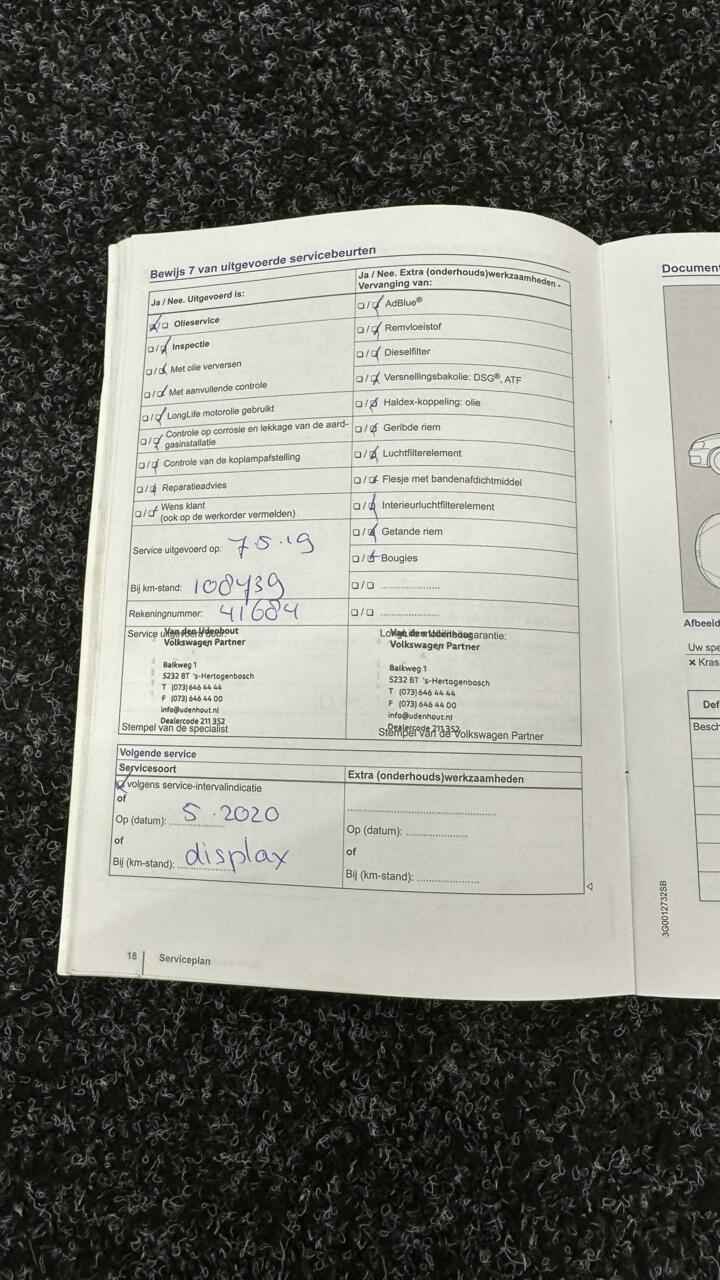 Bewijs 7 van uitgevoerde servicebeurten
Ja / Nee. Uitgevoerd is:
☑ ☐ Olieservice
☐ / ☑ Inspectie
☐ / ☑ Met olie verversen
☐ / ☑ Met aanvullende controle
☐ / ☑ LongLife motorolie gebruikt
☐ / ☑ Controle op corrosie en lekkage van de aard-
gasinstallatie
☐ / ☑ Controle van de koplampafstelling
☐ / ☑ Reparatieadvies
☐ / ☑ Wens klant
(ook op de werkorder vermelden)
Service uitgevoerd op: 7.5.19
Bij km-stand: 108439
Rekeningnummer: 41684
Ja / Nee. Extra (onderhouds)werkzaamheden -
Vervanging van:
☐ / ☑ AdBlue®
☐ / ☑ Remvloeistof
☐ / ☑ Dieselfilter
☐ / ☑ Versnellingsbakolie: DSG®, ATF
☐ / ☑ Haldex-koppeling: olie
☐ / ☑ Geribde riem
☐ / ☑ Luchtfilterelement
☐ / ☑ Flesje met bandenafdichtmiddel
☐ / ☑ Interieurluchtfilterelement
☐ / ☑ Getande riem
☐ / ☑ Bougies
☐ / ☐ ....................
☐ / ☐ ....................
Service uitgevoerd door:
Van den Udenhout
Volkswagen Partner
Balkweg 1
5232 BT 's-Hertogenbosch
T (073) 646 44 44
F (073) 646 44 00
info@udenhout.nl
Dealercode 211 352
Stempel van de specialist
Van den Udenhout
Volkswagen Partner
Balkweg 1
5232 BT 's-Hertogenbosch
T (073) 646 44 44
F (073) 646 44 00
info@udenhout.nl
Dealercode 211 352
Stempel van de Volkswagen Partner
Volgende service
Servicesoort
☑ volgens service-intervalindicatie
of
Op (datum): 5.2020
of
Bij (km-stand): display
Extra (onderhouds)werkzaamheden
Op (datum): ....................
of
Bij (km-stand): ....................
18 Serviceplan
Document
Afbeeld
Uw spe
× Kras
Def
Besch
3G0012732SB